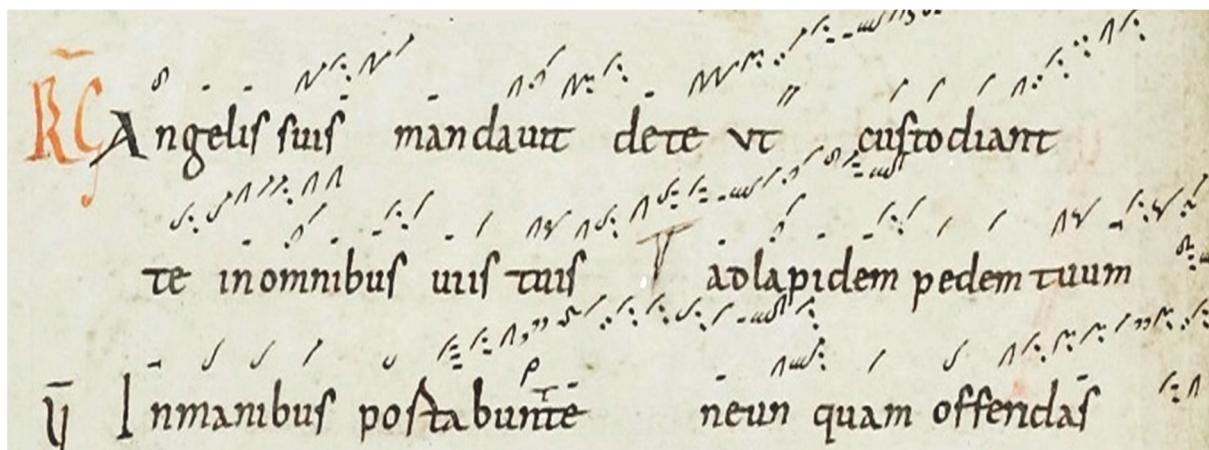 R̄G Angelis suis mandauit dete vt custodiant
te inomnibus uiis tuis adlapidem pedem tuum
ȳ Inmanibus postabunte neun quam offendas